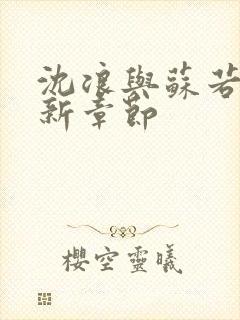 沈浪與蘇若
新章節
櫻空靈曦